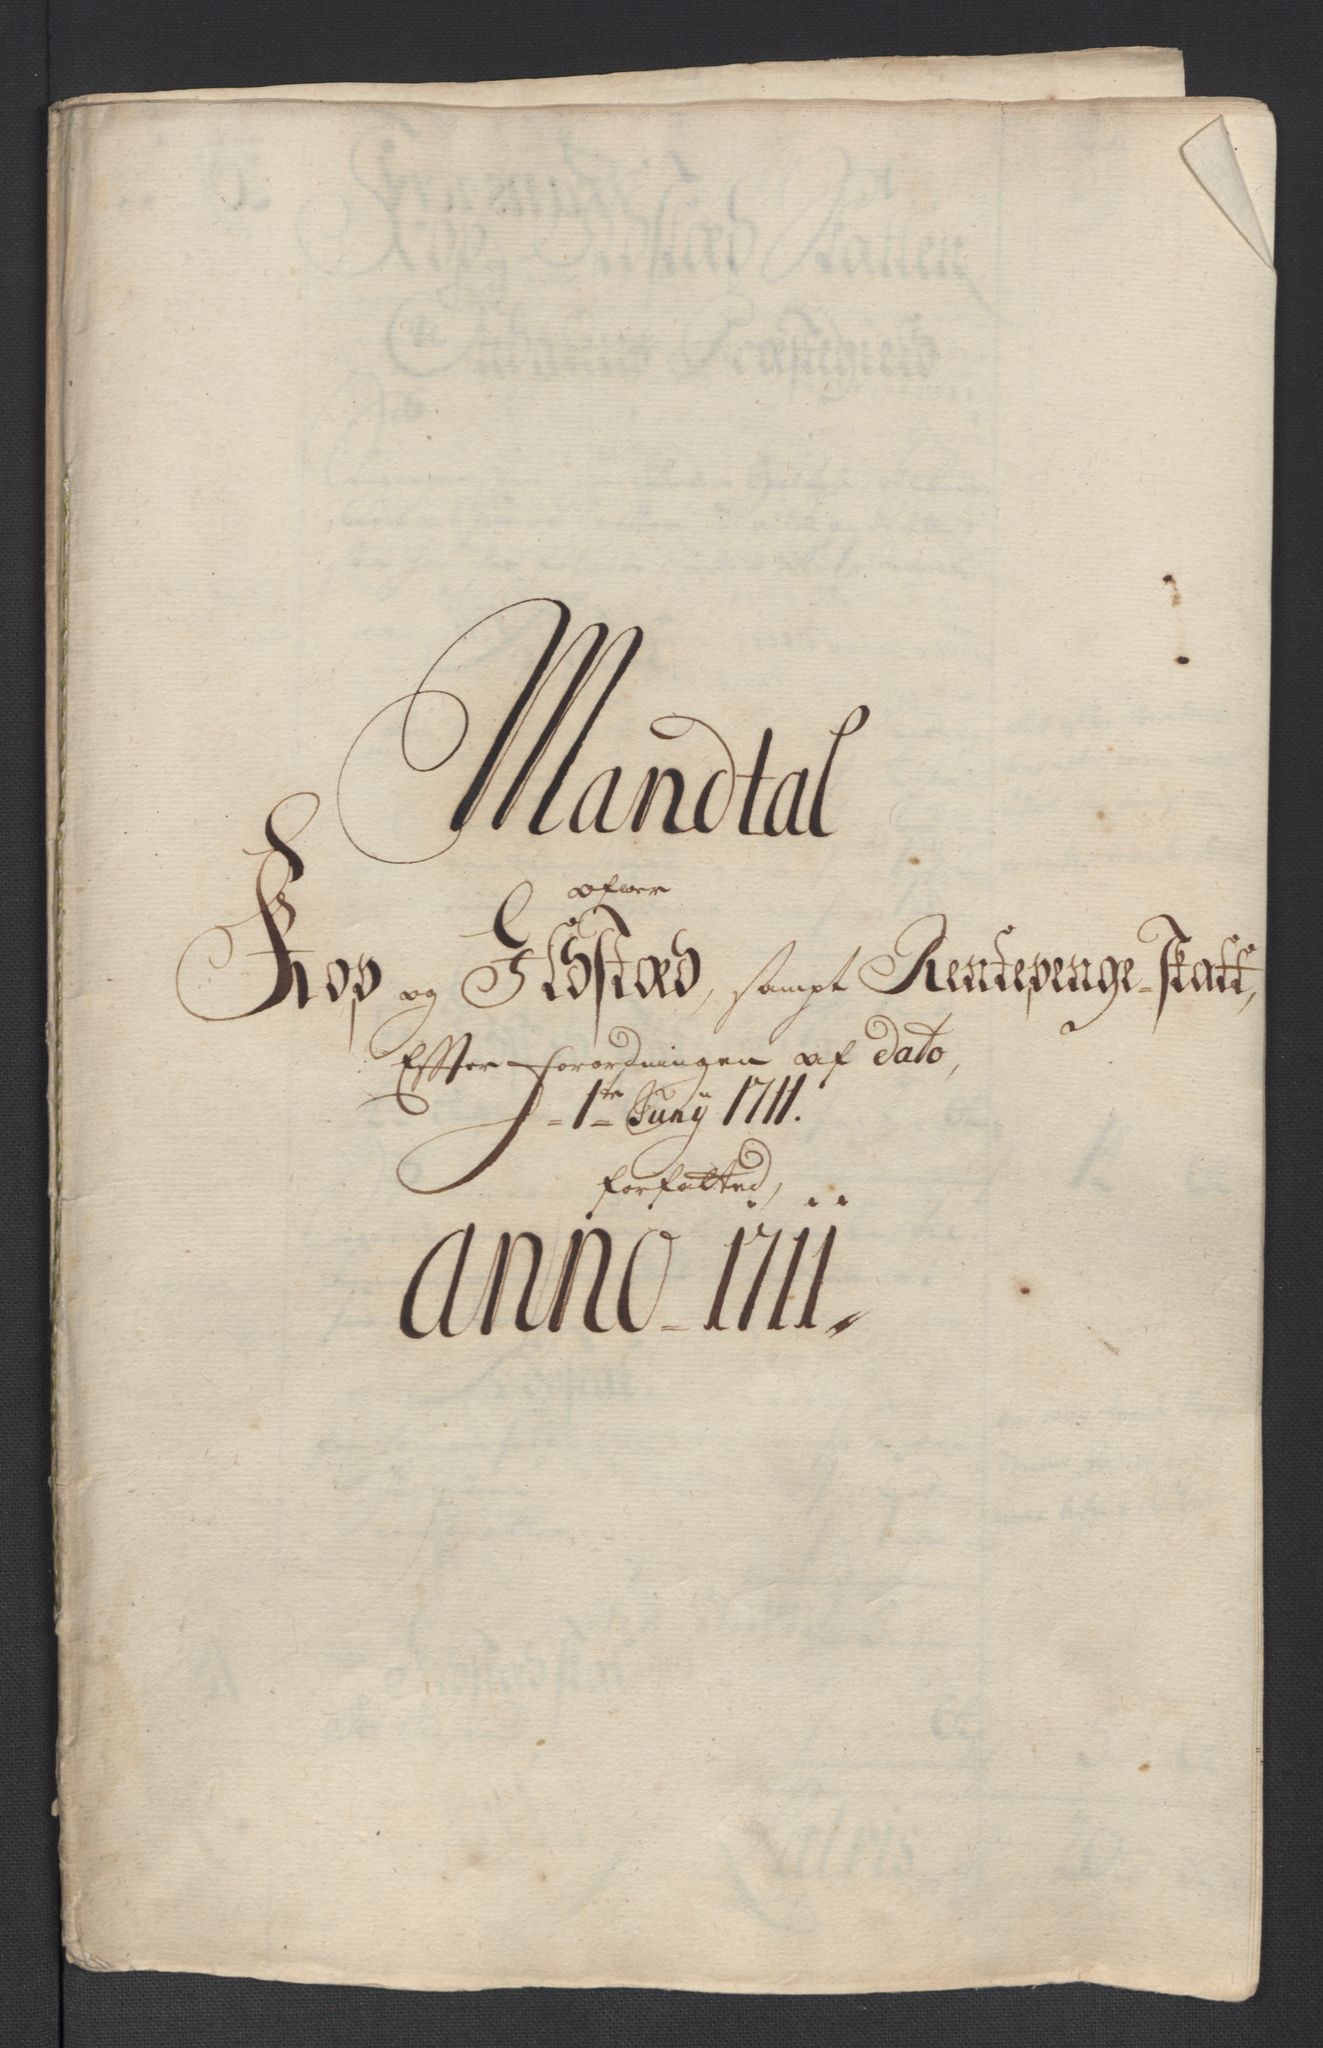 Mandtal
ofwer
Kop og Ildstæd, sampt Rentepenge-Skatt,
Effter forordningen af dato,
1te Juny 1711.
forfatted,
anno 1711.